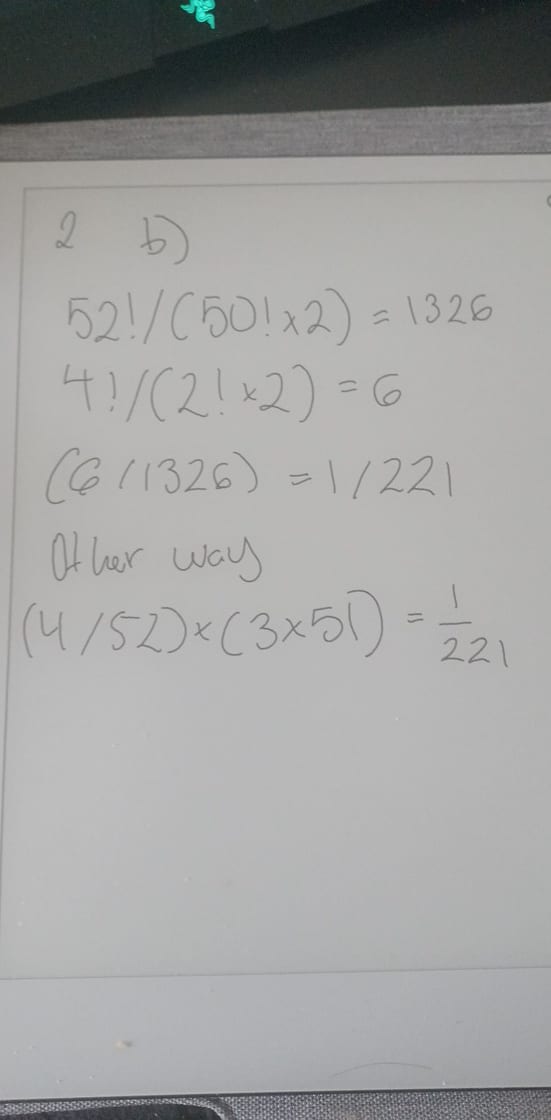 2 b)
52!/(50!×2) = 1326
4!/(2!×2) = 6
(6/1326) = 1/221
Other way
(4/52)×(3×51) = 1/221